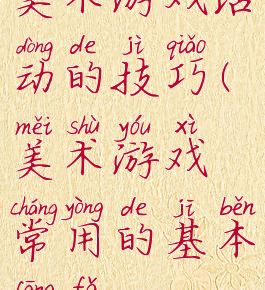 美术游戏活
dòng de jì qiǎo
动的技巧(
měi shù yóu xì
美术游戏
cháng yòng de jī běn
常用的基本